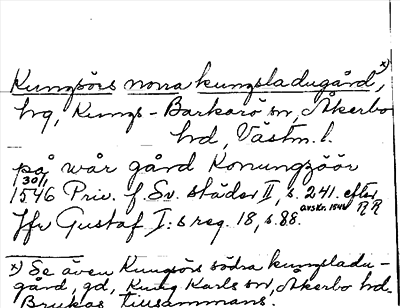 Kungsörs norra kungsladugård, x)
hg, Kungs-Barkarö sn, Åkerbo
hd, Västm. l.
på wår gård Konungzöör
1546 30/1 Priv. f. Sv. städer II, s. 241. efter
avskr. 1540 RR
Jfr Gustaf I:s reg. 18, s. 88.
x) Se även Kungsörs södra kungsladu-
gård, gd, Kung Karls sn, Åkerbo hd.
Brukas tillsammans.